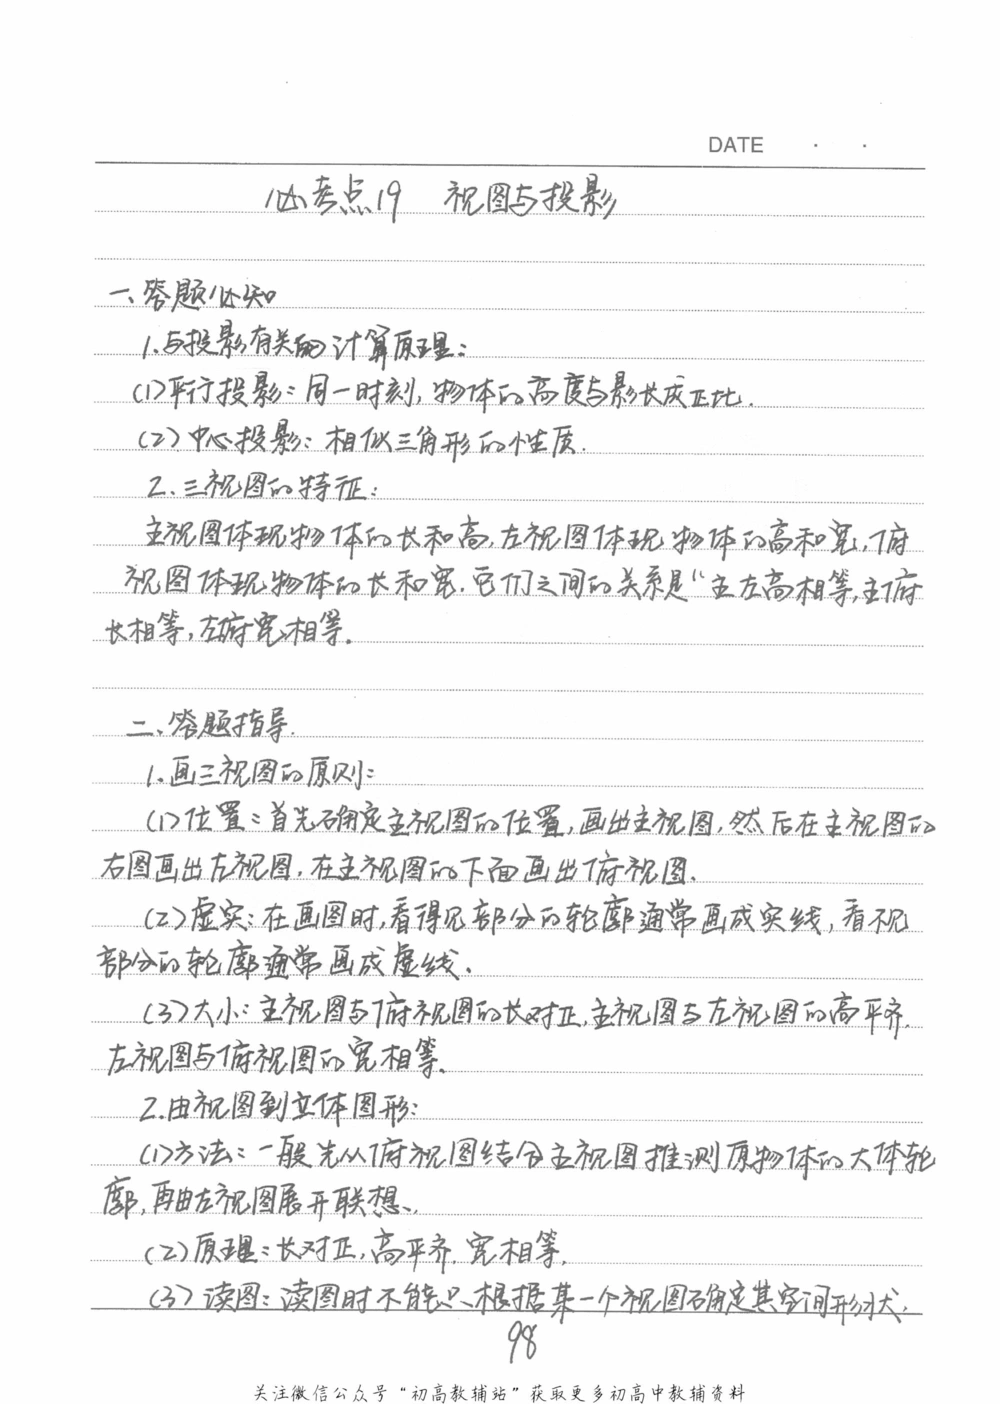 DATE · ·
必考点19 视图与投影
一、答题必知
1.与投影有关的计算原理:
(1)平行投影:同一时刻,物体的高度与影长成正比.
(2)中心投影:相似三角形的性质.
2.三视图的特征:
主视图体现物体的长和高,左视图体现物体的高和宽,俯
视图体现物体的长和宽.它们之间的关系是“主左高相等,主俯
长相等,左俯宽相等.
二、答题指导.
1.画三视图的原则:
(1)位置:首先确定主视图的位置,画出主视图,然后在主视图的
右图画出左视图,在主视图的下面画出俯视图.
(2)虚实:在画图时,看得见部分的轮廓通常画成实线,看不见
部分的轮廓通常画成虚线.
(3)大小:主视图与俯视图的长对正,主视图与左视图的高平齐.
左视图与俯视图的宽相等.
2.由视图到立体图形:
(1)方法:一般先从俯视图结合主视图推测原物体的大体轮
廓,再由左视图展开联想.
(2)原理:长对正,高平齐.宽相等.
(3)读图:读图时不能只根据某一个视图确定其空间形状.
98
关注微信公众号“初高教辅站”获取更多初高中教辅资料